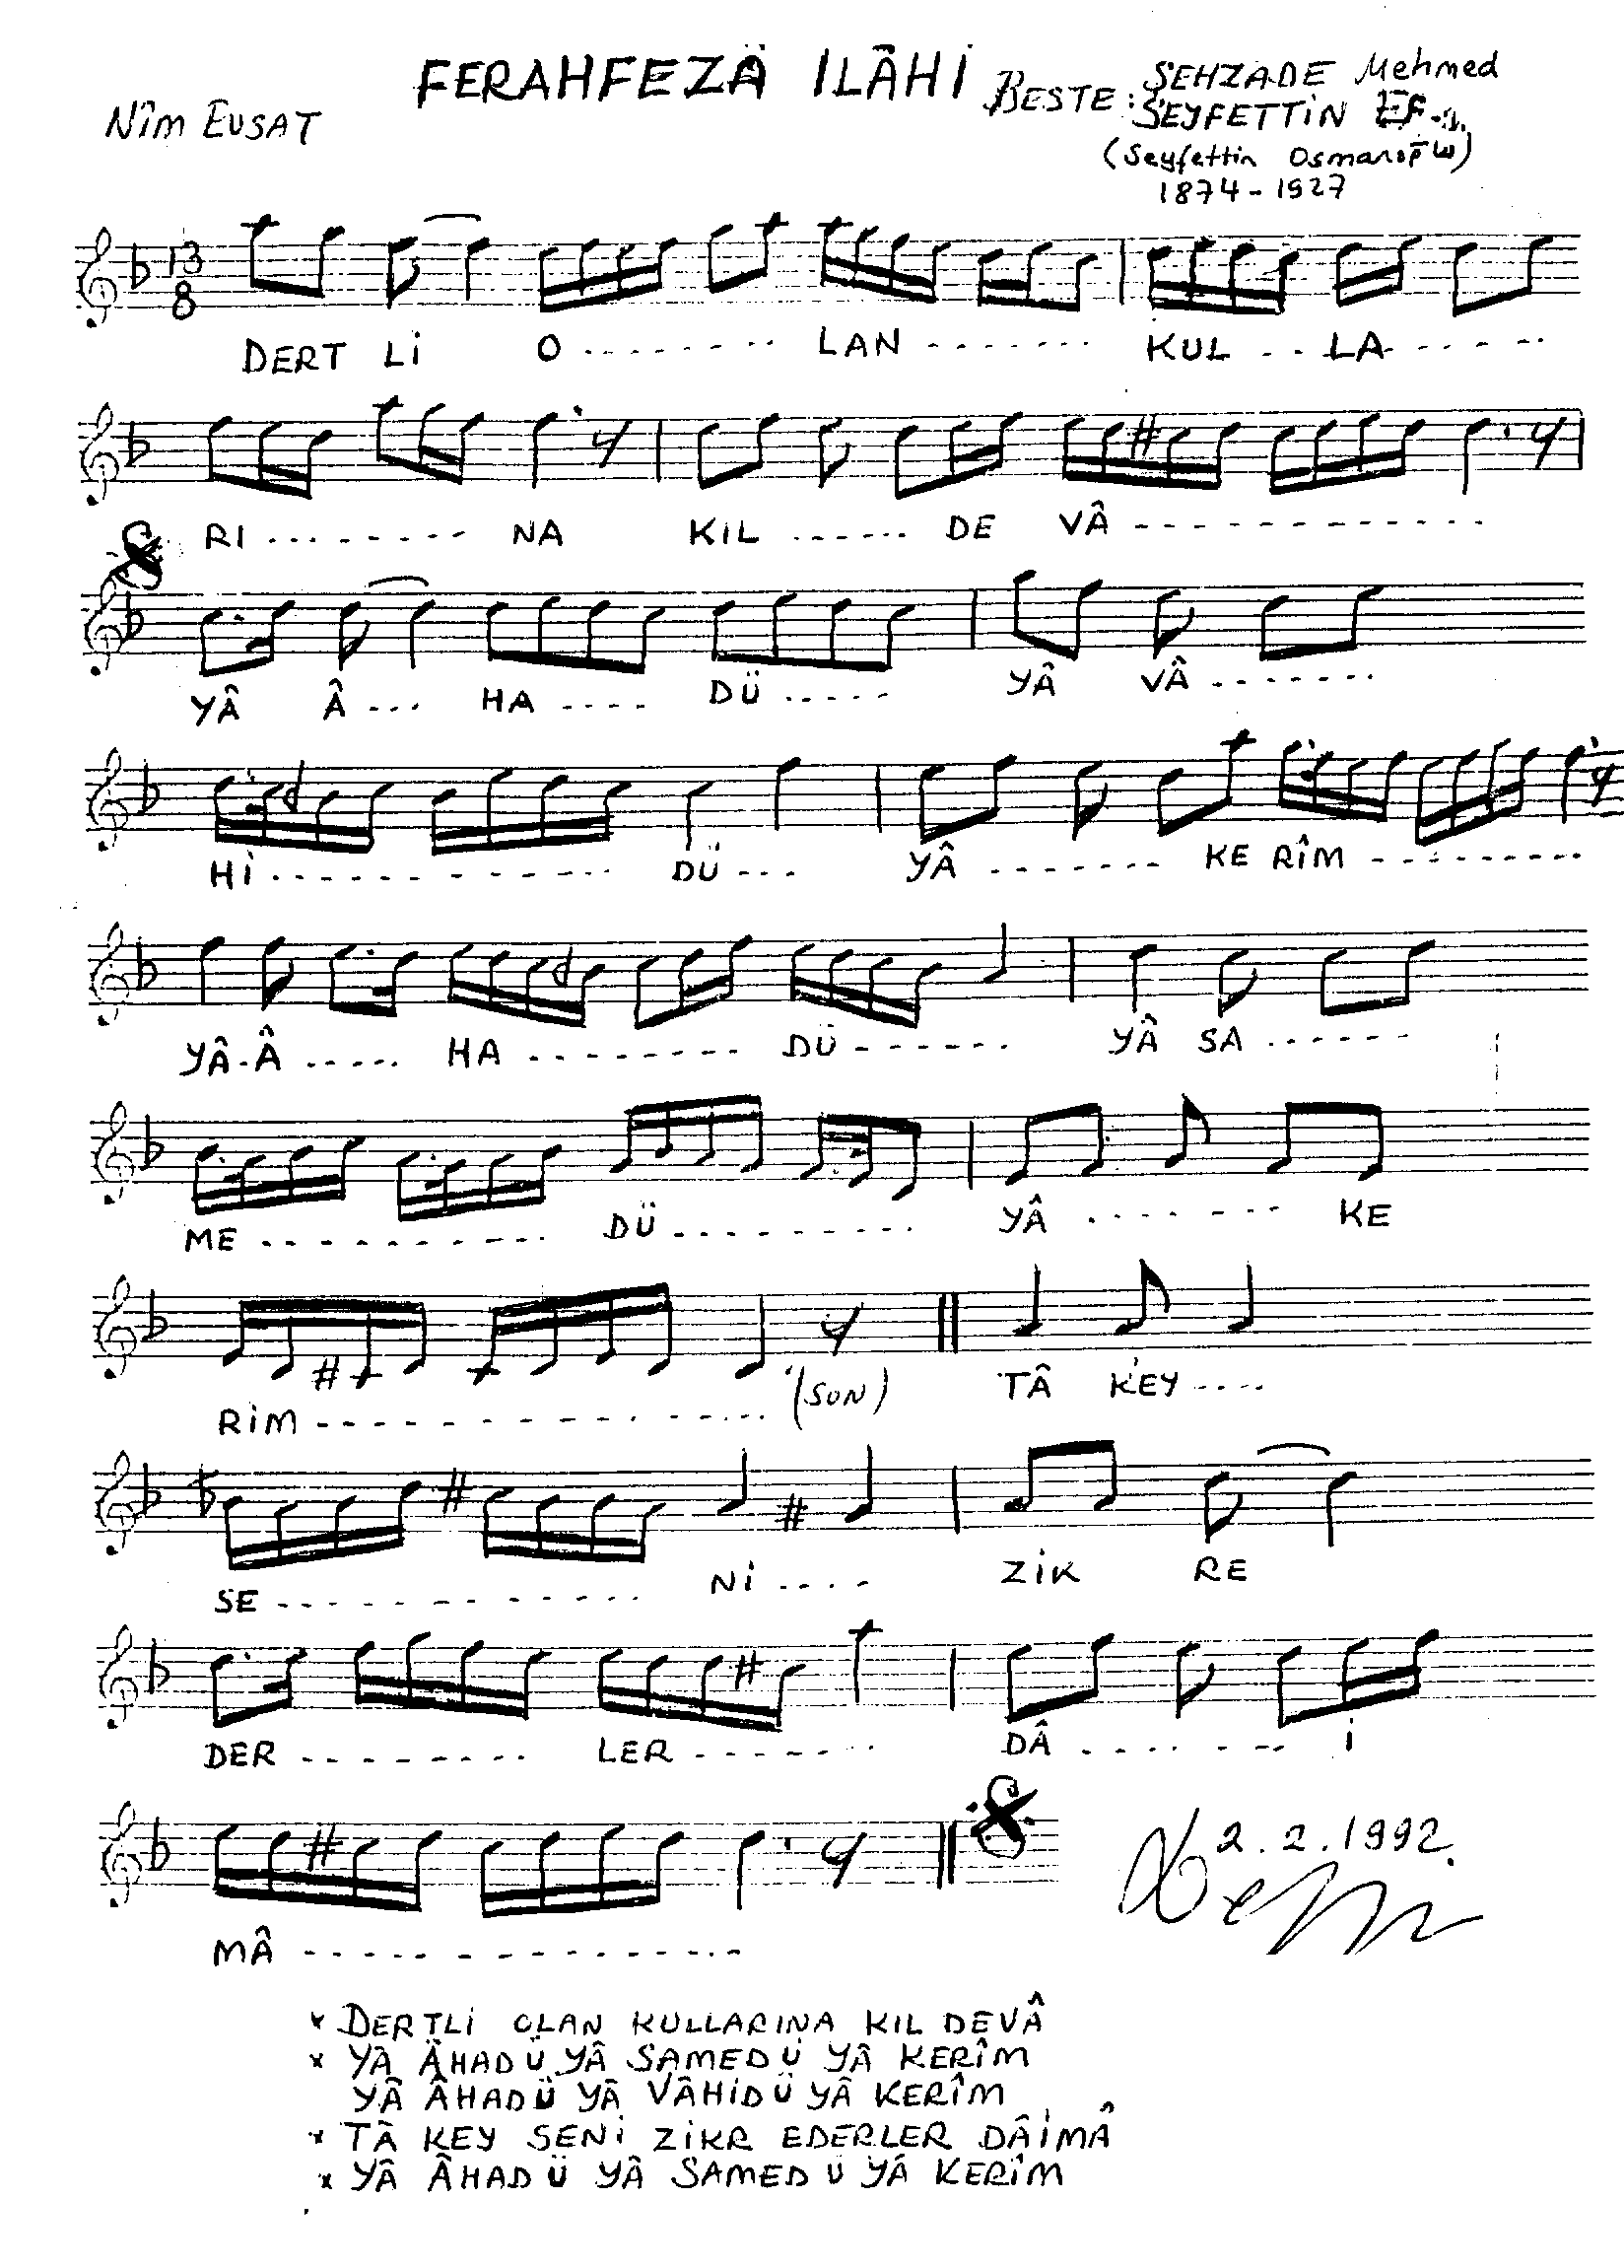 FERAHFEZÂ İLÂHİ
NÎM EVSAT
BESTE: ŞEHZADE Mehmed
SEYFETTİN EF.
(Seyfettin Osmanoğlu)
1874-1927
13
8
DERT Lİ O ........ LAN ....... KUL ... LA ......
RI ......... NA KIL ...... DE VÂ ..............
YÂ Â ... HA .... DÜ ..... YÂ VÂ .......
Hİ ............. DÜ ... YÂ ....... KE RÎM ..........
YÂ - Â ..... HA ......... DÜ ....... YÂ SA ......
ME ........... DÜ ......... YÂ ....... KE
RİM ............. (SON) TÂ KEY ....
SE ............. Nİ .... ZİK RE
DER ......... LER ....... DÂ ....... İ
MÂ ................
2.2.1992
x DERTLİ OLAN KULLARINA KIL DEVÂ
x YÂ ÂHADÜ YÂ SAMEDÜ YÂ KERÎM
YÂ ÂHADÜ YÂ VÂHİDÜ YÂ KERÎM
x TÂ KEY SENİ ZİKR EDERLER DÂİMÂ
x YÂ ÂHADÜ YÂ SAMEDÜ YÂ KERÎM